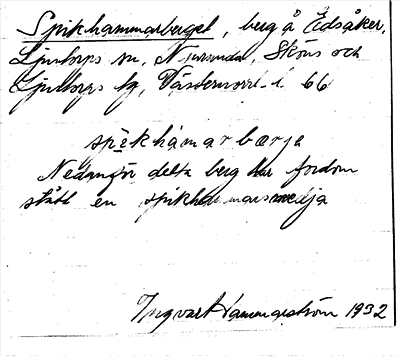 Spikhammarberget, berg å Edsåker,
Ljustorps sn, Njurunda, Sköns och
Ljustorps tg, Västernorrl. l. 66
spèkhámarbærja
Nedanför detta berg har fordom
stått en spikhammarsmedja
Ingvart Hammarström 1932